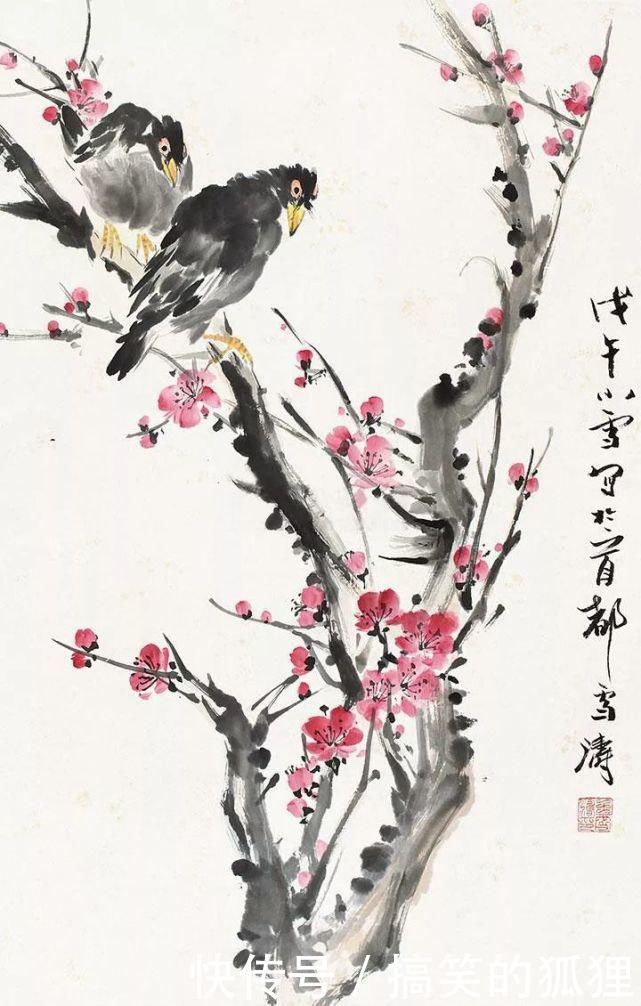 戊午小雪写于首都雪涛
快传号/搞笑的狐狸